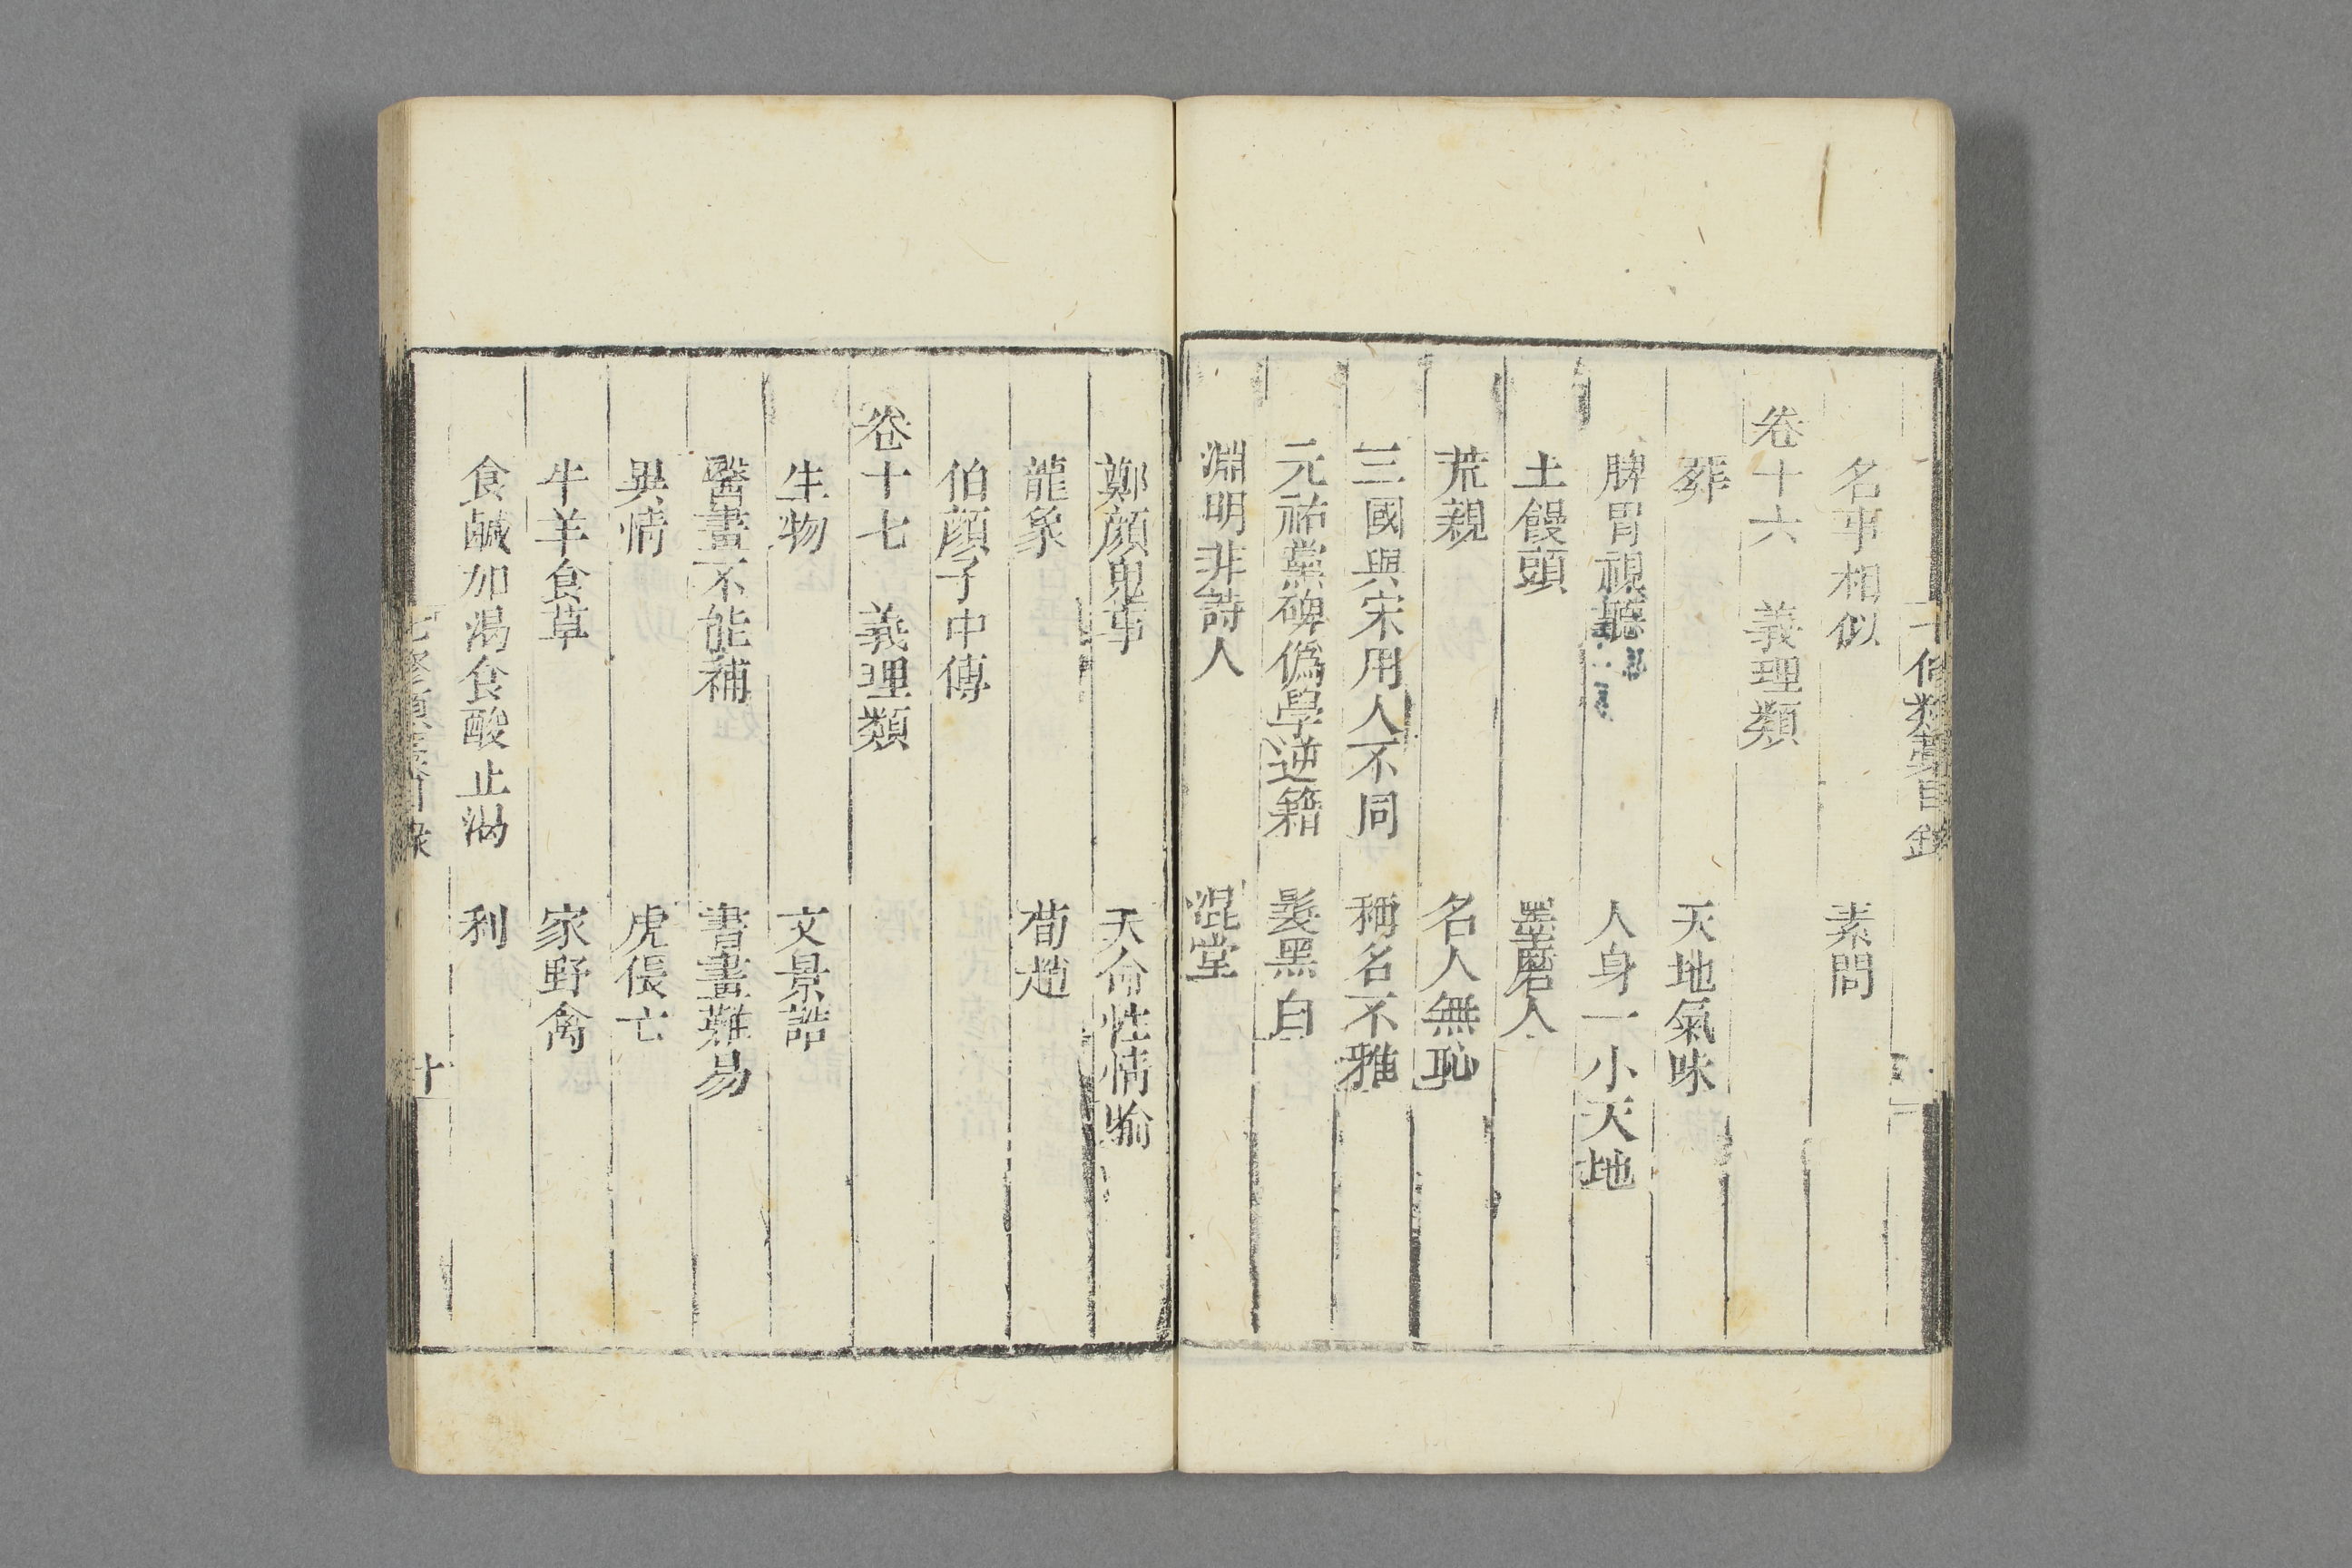 類藁目錄
名事相似 素問
卷十六 義理類
葬 天地氣味
脾胃視聽 人身一小天地
土饅頭 墨磨人
荒親 名人無恥
三國與宋用人不同 稱名不雅
元祐黨碑僞學逆籍 髮黑白
淵明非詩人 混堂
鄭顔鬼事 天命性情喻
龍象 荀趙
伯顔子中傳
卷十七 義理類
生物 文景誥
醫畫不能補 書畫難易
異情 虎倀亡
牛羊食草 家野禽
食鹹加渴食酸止渴 利
十